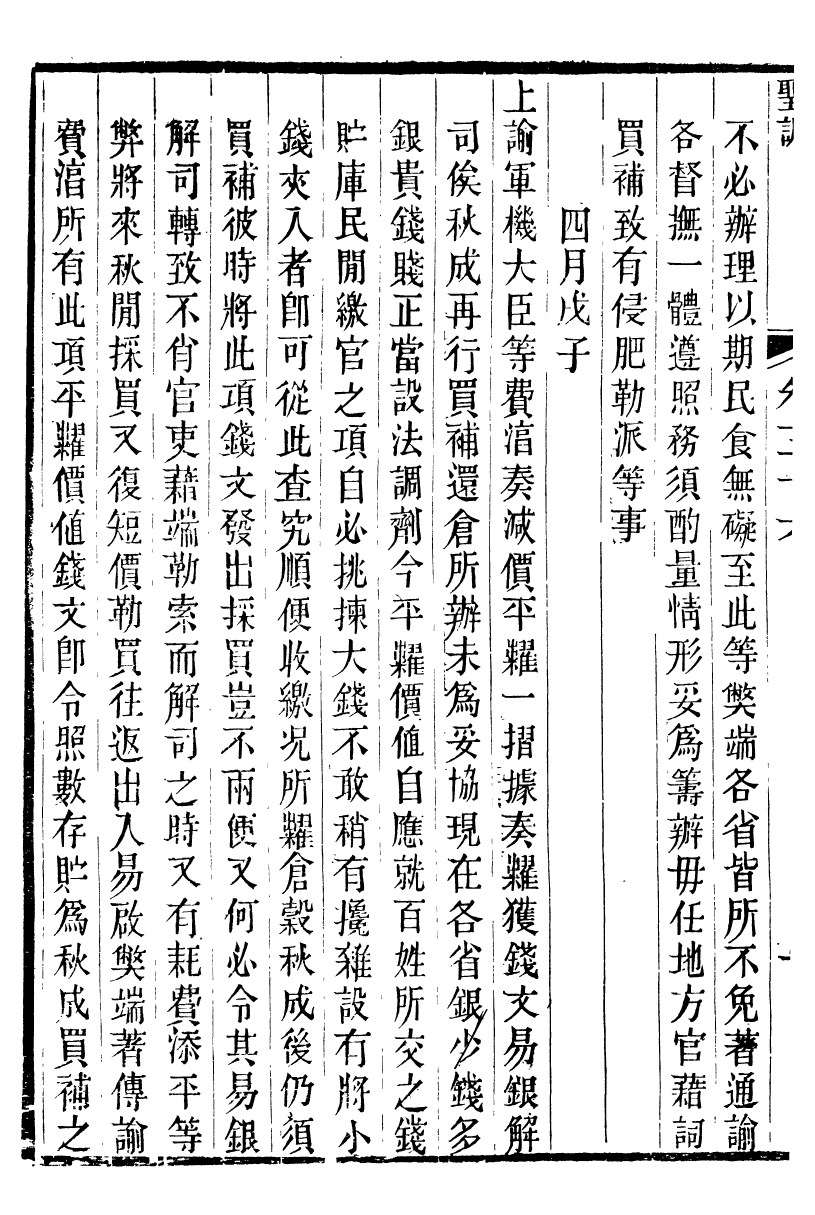 聖訓
不必辦理以期民食無礙至此等獘端各省皆所不免著通諭
各督撫一體遵照務須酌量情形妥爲籌辦毋任地方官藉詞
買補致有侵肥勒派等事
四月戊子
上諭軍機大臣等費淳奏減價平糶一摺據奏糶獲錢文易銀解
司俟秋成再行買補還倉所辦未爲妥協現在各省銀少錢多
銀貴錢賤正當設法調劑今平糶價值自應就百姓所交之錢
貯庫民閒繳官之項自必挑揀大錢不敢稍有攙雜設有將小
錢夾入者卽可從此查究順便收繳况所糶倉穀秋成後仍須
買補彼時將此項錢文發出採買豈不兩便又何必令其易銀
解司轉致不肖官吏藉端勒索而解司之時又有耗費添平等
弊將來秋閒採買又復短價勒買往返出入易啟獘端著傳諭
費淳所有此項平糶價值錢文卽令照數存貯爲秋成買補之